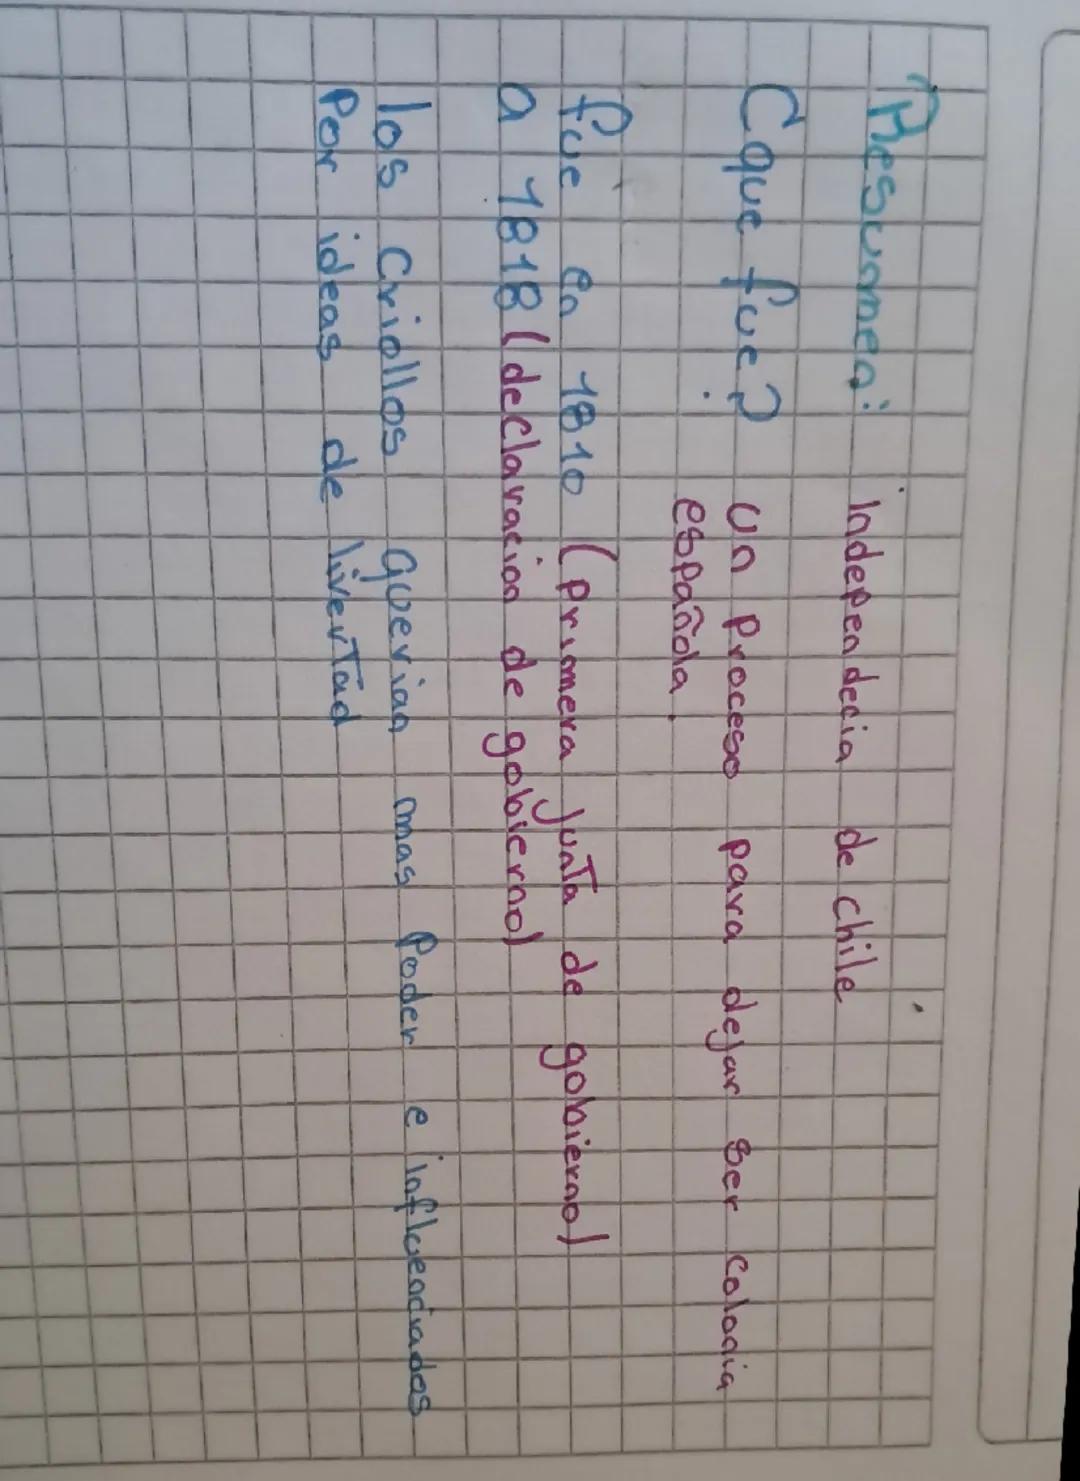 Resumen: independecia de chile
¿que fue? un proceso para dejar ser colonia
española.
fue en 1810 (primera junta de gobierno)
a 1818 (declaracion de gobierno)
los criollos querian mas poder e influenciados
por ideas de livertad